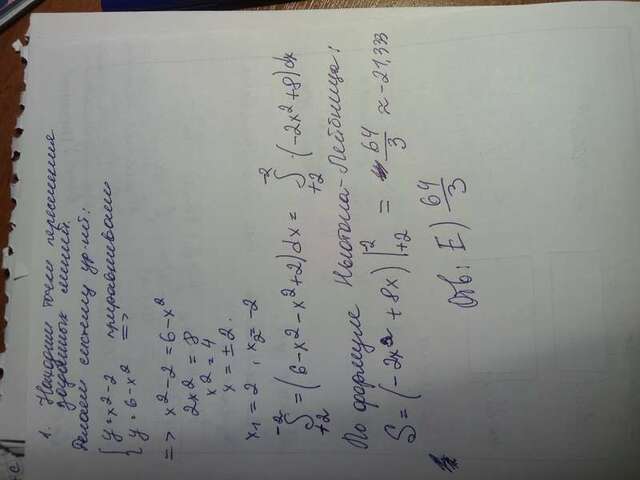 1. Находим точки пересечения
заданных линий.
Делаем систему ур-ий:
{ y = x² - 2 приравниваем
{ y = 6 - x² =>
=> x² - 2 = 6 - x²
2x² = 8
x² = 4
x = ± 2.
x₁ = 2 , x₂ = -2
∫ -2 +2 = (6 - x² - x² + 2) dx = ∫ -2 +2 · (-2x² + 8) dx
По формуле Ньютона-Лейбница:
S = (-2x² + 8x) |-2 +2 = 64/3 ≈ -21,333
Отв: E) 64/3